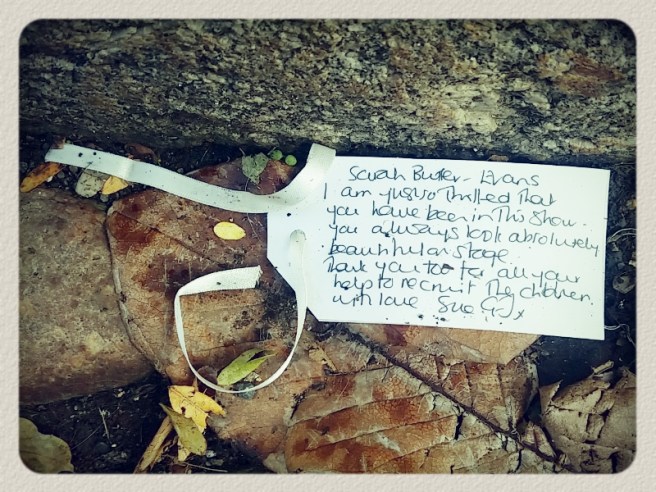 Sarah Butler-Evans
I am just so thrilled that
you have been in this show.
you always look absolutely
beautiful on stage.
Thank you too for all your
help to recruit the children.
with love Sue x